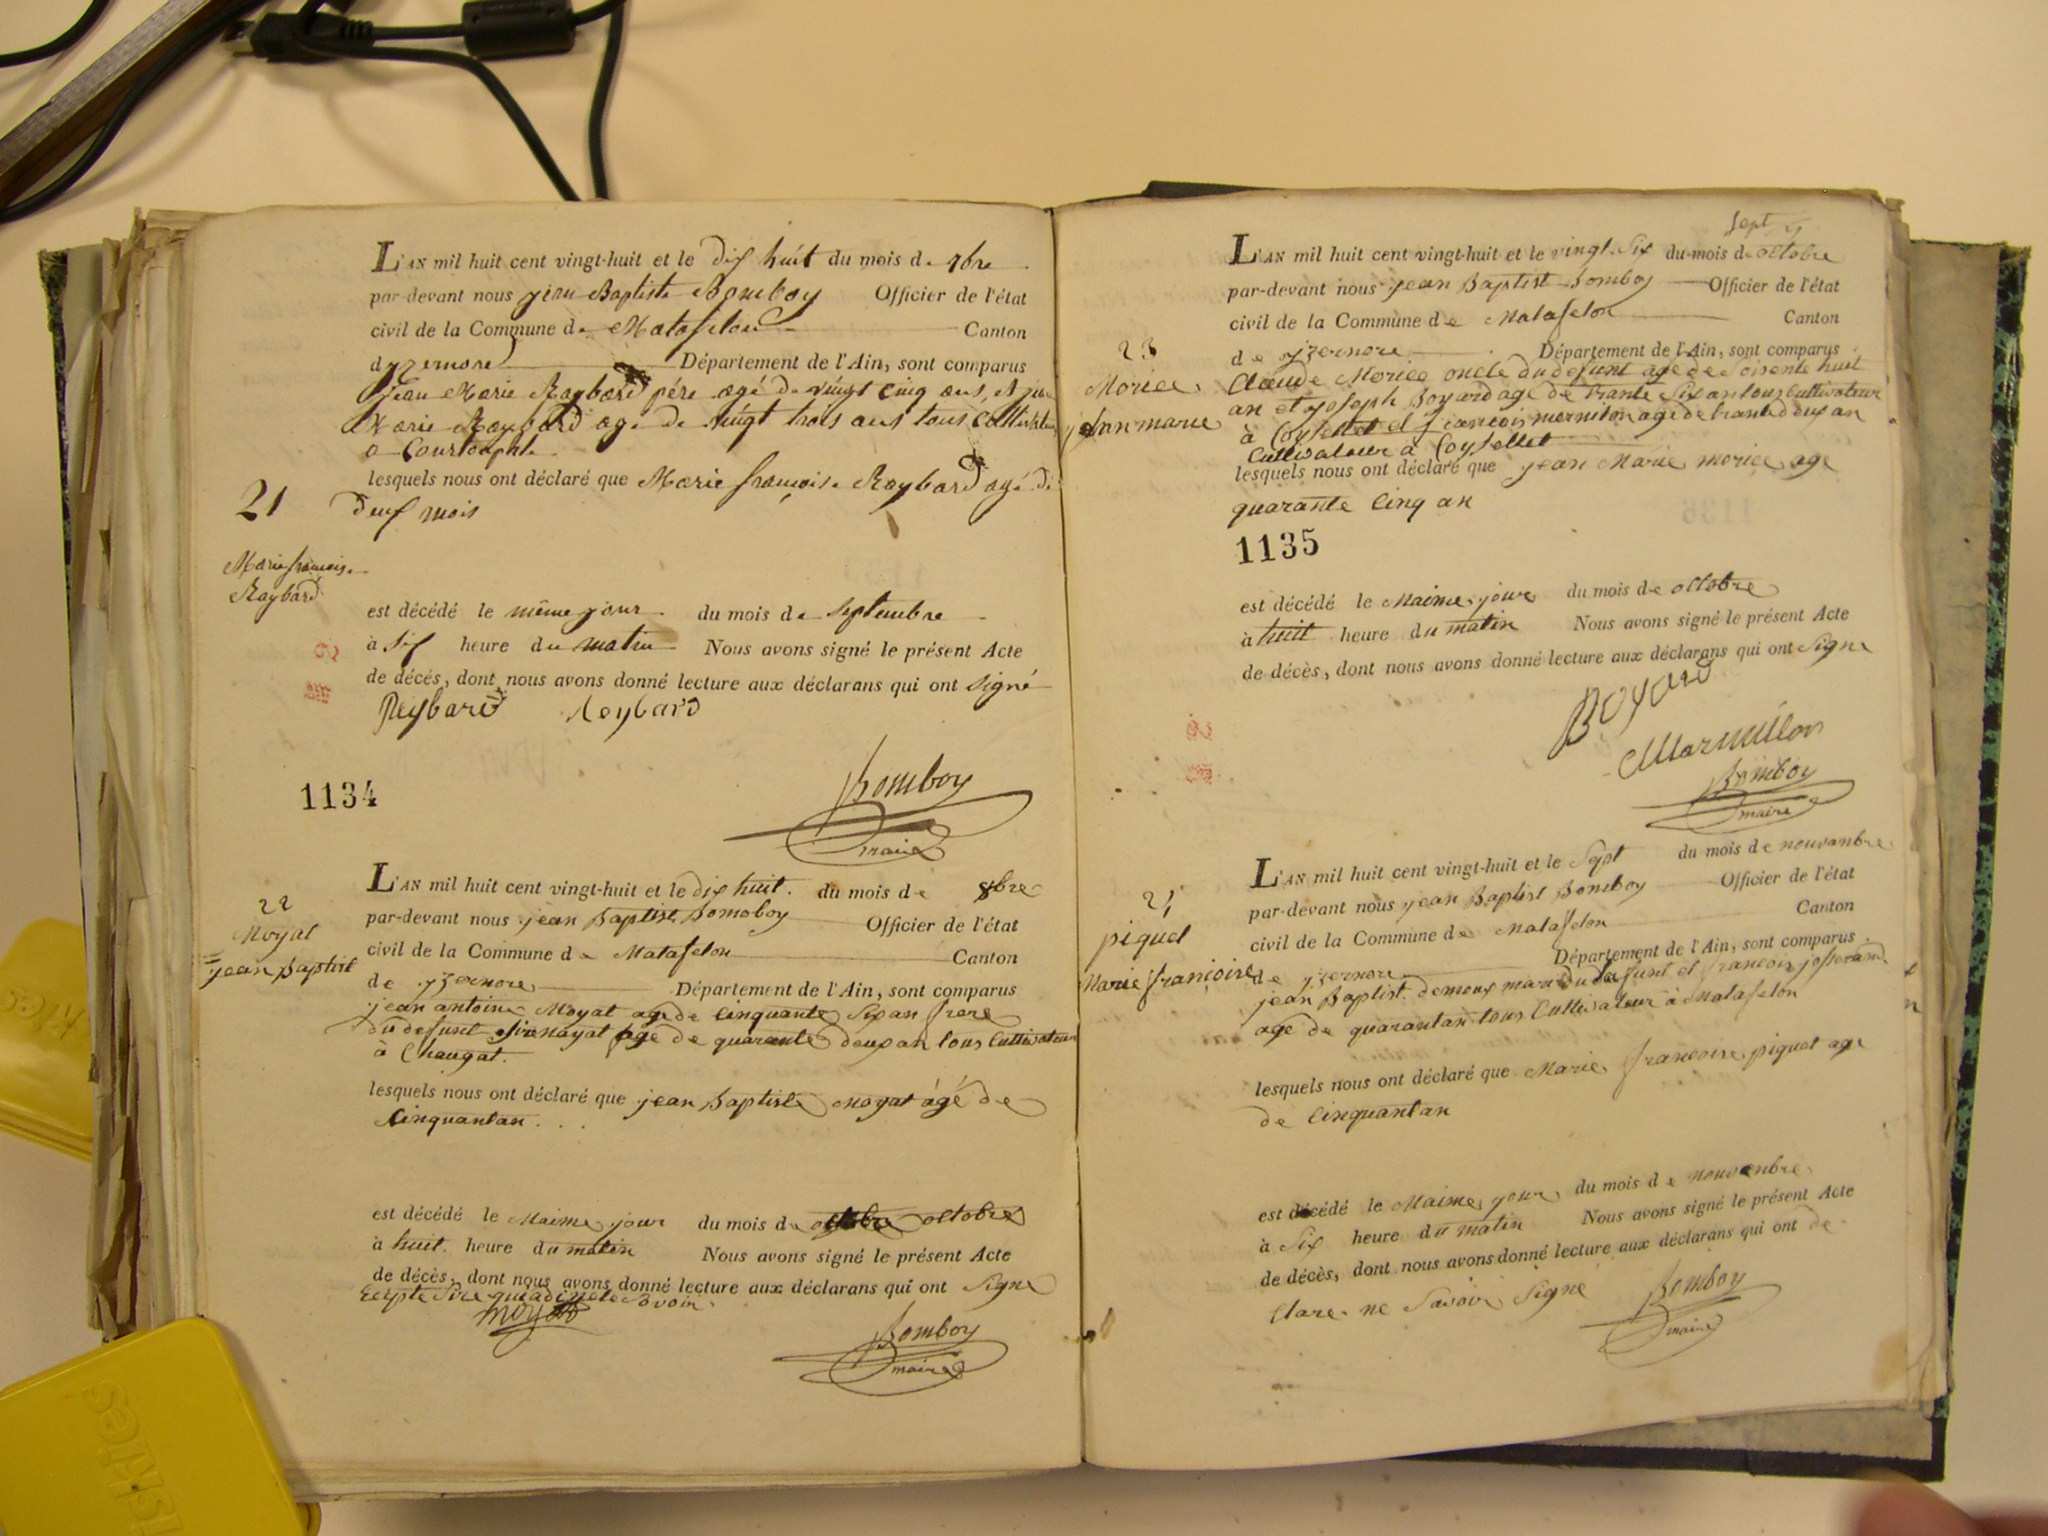 L'AN mil huit cent vingt-huit et le dix huit du mois de 7bre
par-devant nous jean Baptiste Bomboy Officier de l'état
civil de la Commune de Matafelon Canton
dyzernore Département de l'Ain, sont comparus
Jean Marie Raybard pére agé de vingt cinq ans, et jean
Marie Raybard age de vingt trois ans tous Cultivateurs
a Courtouphle
lesquels nous ont déclaré que Marie françoise Raybard agé de
21
deux mois
Marie françoise
Raybard
est décédé le même jour du mois de septembre
à six heure du matin Nous avons signé le présent Acte
de décés, dont nous avons donné lecture aux déclarans qui ont signé
Reybard Reybard
1134
Bomboy
maire
L'AN mil huit cent vingt-huit et le dix huit. du mois de 8bre
22
Moyat
jean Baptist
par-devant nous jean Baptist Bomboy Officier de l'état
civil de la Commune de Matafelon Canton
de yzernore Département de l'Ain, sont comparus
jean antoine Moyat age de cinquante Six an frere
du defunt moyat age de quarante deux an tous Cultivateur
à Chougat.
lesquels nous ont déclaré que jean Baptiste Moyat âgé de
Cinquantan . . .
est décédé le Maime jour du mois de octobre octobre
à huit. heure du matin Nous avons signé le présent Acte
de décès, dont nous avons donné lecture aux déclarans qui ont Signe
moyat
Bomboy
maire
Sept
L'AN mil huit cent vingt-huit et le vingt Six du mois de octobre
par-devant nous jean Baptist Bomboy Officier de l'état
civil de la Commune de Matafelon Canton
23
Morice
jeanmarie
de yzernore Département de l'Ain, sont comparus
Claude Morice oncle du defunt age de Soisente huit
an et joseph Boyard age de trante Six an tous Cultivateur
à Coysellet et francois mermilon age de trante deux an
Cultivateur a Coysellet
lesquels nous ont déclaré que jean Marie morice age
quarante Cinq an
1135
est décédé le Maime jour du mois de octobre
à huit heure du matin Nous avons signé le présent Acte
de décès, dont nous avons donné lecture aux déclarans qui ont Signe
Boyard
Marmillon
Bomboy
maire
L'AN mil huit cent vingt-huit et le Sept du mois de nouvambre
24
piquet
Marie françoise
par-devant nous jean Baptist Bomboy Officier de l'état
civil de la Commune de Matafelon Canton
de yzernore Département de l'Ain, sont comparus
jean Baptist. demoux mari du defunt et francois josserand
age de quarantan tous Cultivateur à Matafelon
lesquels nous ont déclaré que Marie francoise piquet age
de Cinquantan
est décédé le Maime jour du mois de nouvenbre
à Six heure du matin Nous avons signé le présent Acte
de décès, dont nous avons donné lecture aux déclarans qui ont de
Clare ne Savoir Signe
Bomboy
maire